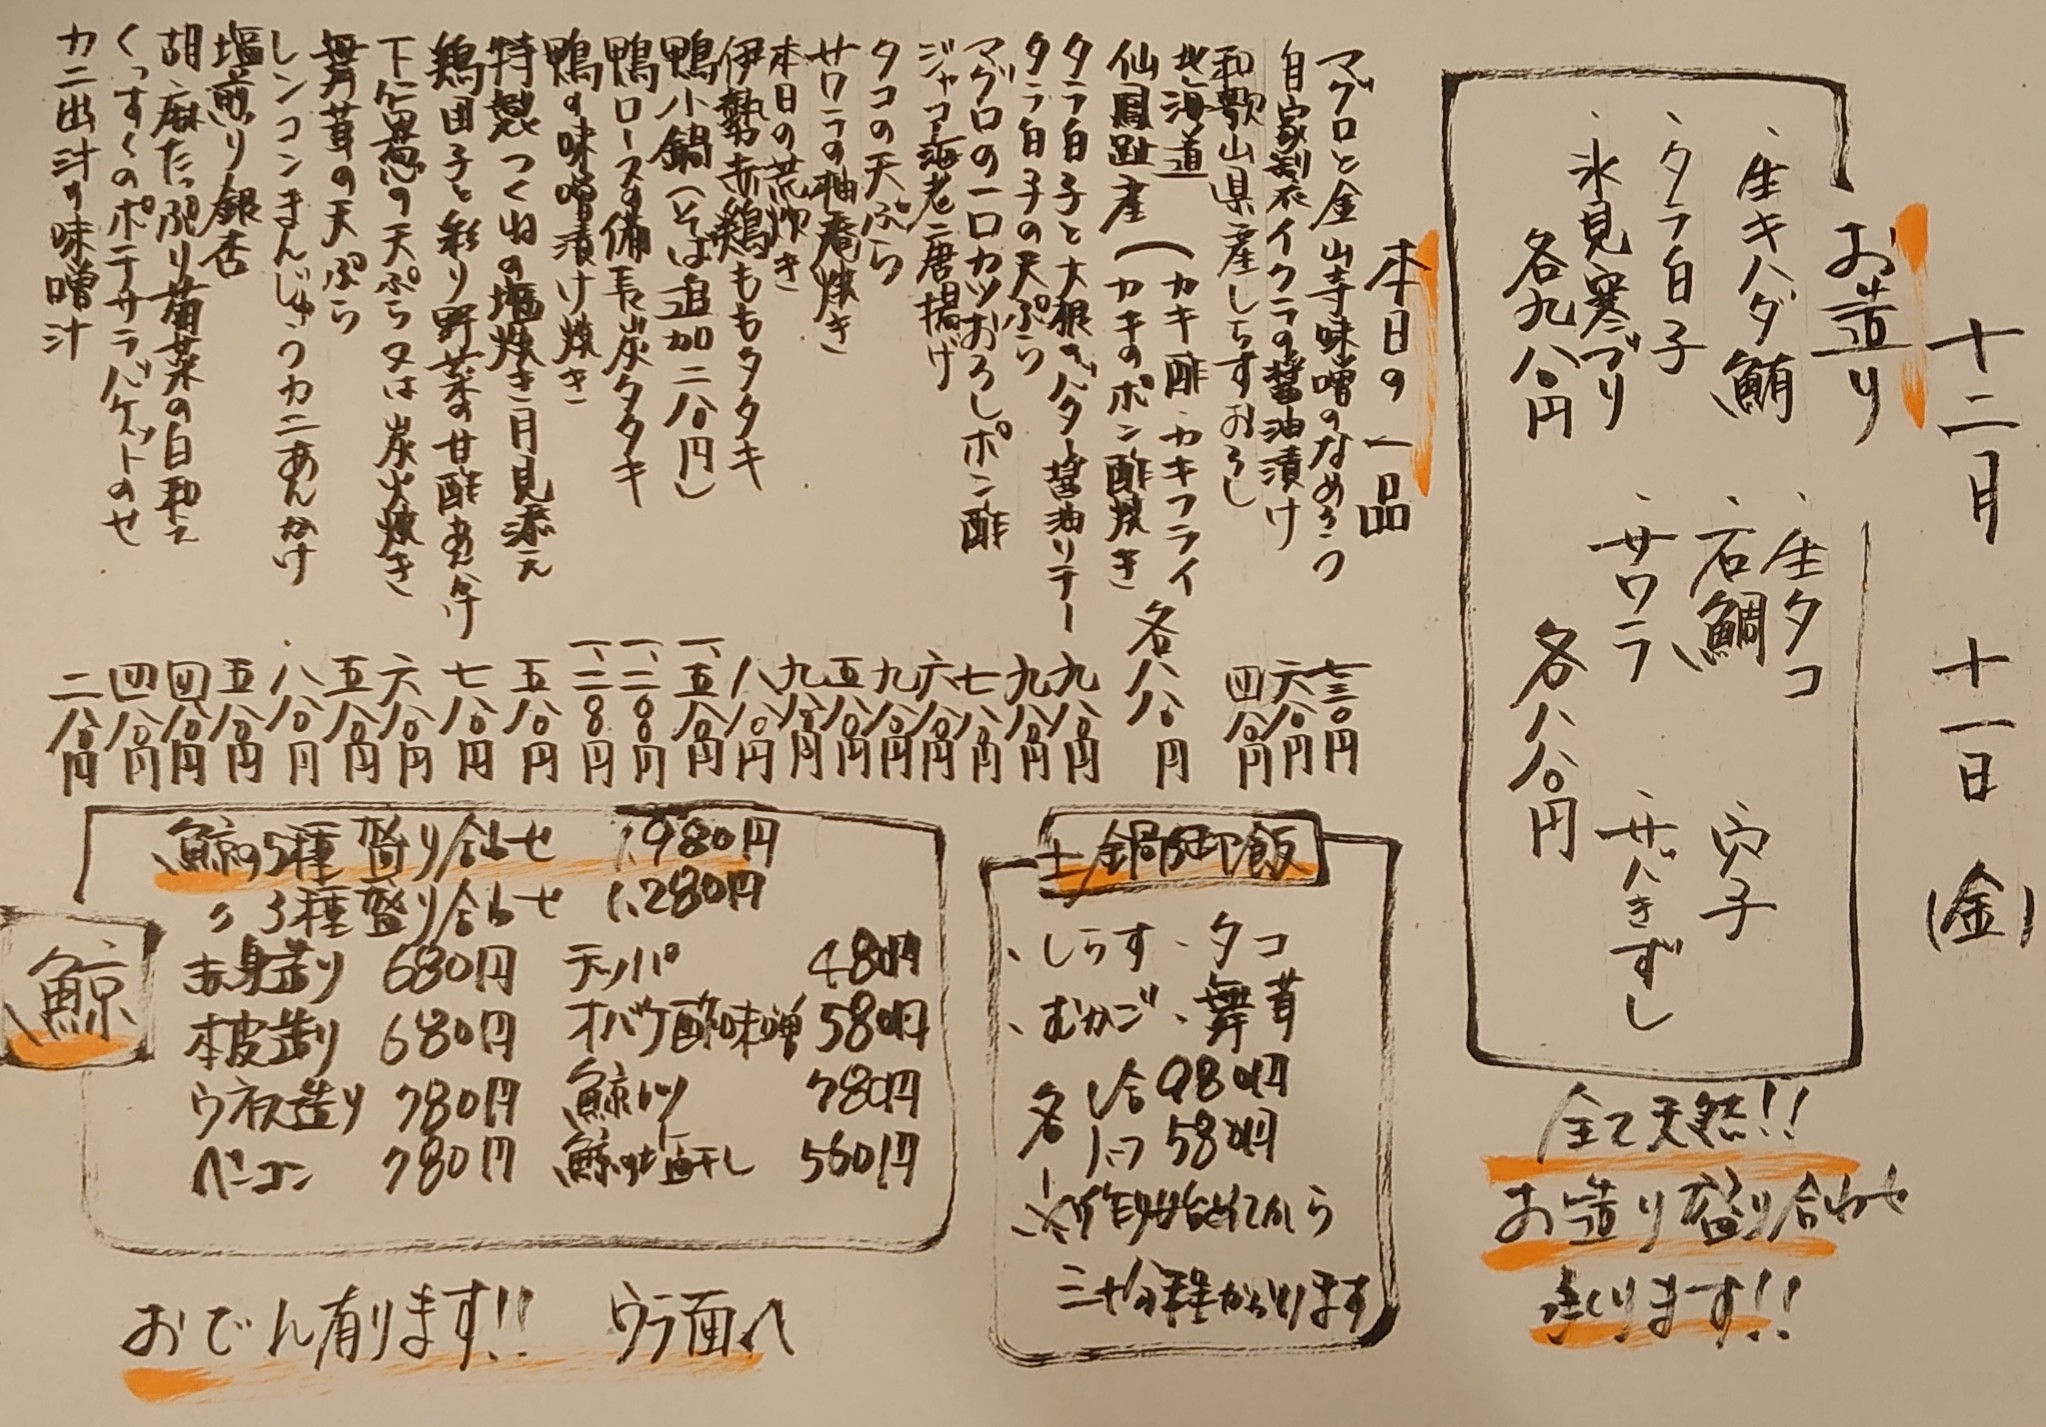 十二月 十一日 (金)
お造り
、生キハダ鮪
、タラ白子
、氷見寒ブリ
各九八〇円
、生タコ
、石鯛
、サワラ
、穴子
、サバきずし
各八八〇円
全て天然!!
お造り盛り合わせ
承ります!!
本日の一品
マグロと金山寺味噌のなめろう 七三〇円
自家製イクラの醤油漬け 六八〇円
和歌山県産しらすおろし 四八〇円
北海道
仙鳳趾産(カキ酢・カキフライ
(カキのポン酢焼き 各八八〇円
タラ白子と大根のバター醤油リテー 九八〇円
タラ白子の天ぷら 九八〇円
マグロの一口カツおろしポン酢 七八〇円
ジャコ海老唐揚げ 六八〇円
タコの天ぷら 九八〇円
サワラの柚庵焼き 五八〇円
本日の荒炊き 九八〇円
伊勢赤鶏ももタタキ 八八〇円
鴨小鍋(そば追加二八〇円) 一、五八〇円
鴨ロースの備長炭タタキ 一、二八〇円
鴨の味噌漬け焼き 一、二八〇円
特製つくねの塩焼き月見添え 五八〇円
鶏団子と彩り野菜の甘酢あんかけ 七八〇円
下仁田葱の天ぷら又は炭火焼き 六八〇円
舞茸の天ぷら 五八〇円
レンコンまんじゅうカニあんかけ 八八〇円
塩煎り銀杏 五八〇円
胡麻たっぷり菊菜の白和え 四八〇円
くんすくのポテサラバケットのせ 四八〇円
カニ出汁の味噌汁 二八〇円
土鍋御飯
、しらす 、タコ
、むかご 、舞茸
各 1合 980円
1つ 580円
※作り始めてから
三十分程かかります
鯨
鯨の5種盛り合わせ 1,980円
〃 3種盛り合わせ 1,280円
赤身造り 680円 テッパ 480円
本皮造り 680円 オバケ酢味噌 580円
ウネス造り 780円 鯨カツ 780円
ベーコン 780円 鯨の塩干し 580円
おでん有ります!! ウラ面へ